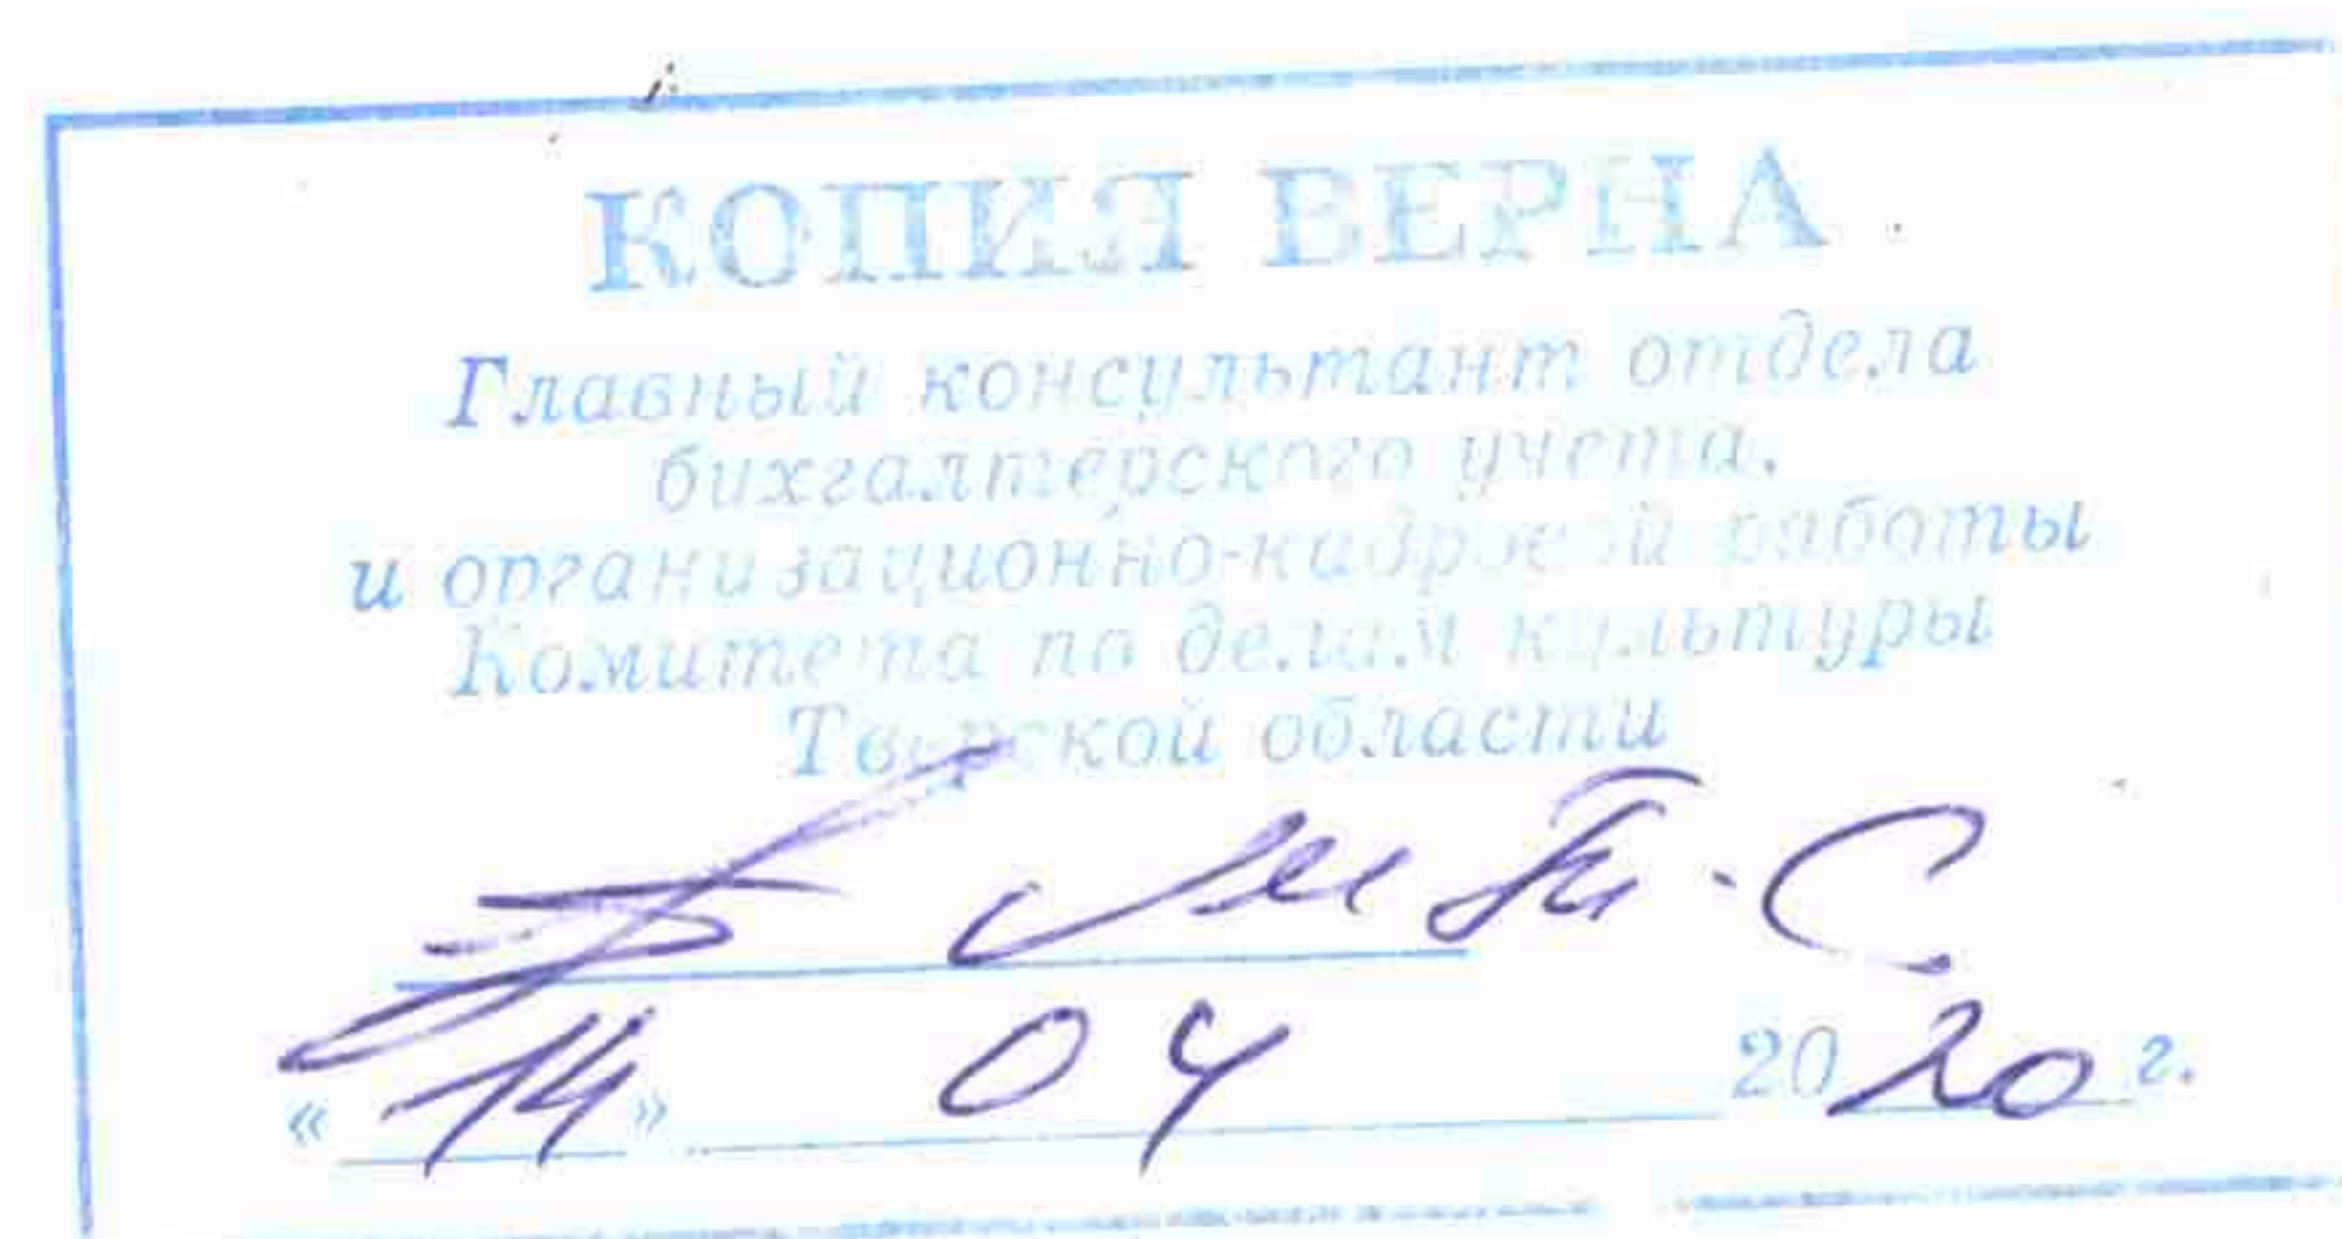 КОПИЯ ВЕРНА
Главный консультант отдела
бухгалтерского учета,
и организационно-кадровой работы
Комитета по делам культуры
Тверской области
«14» 04 2020 г.